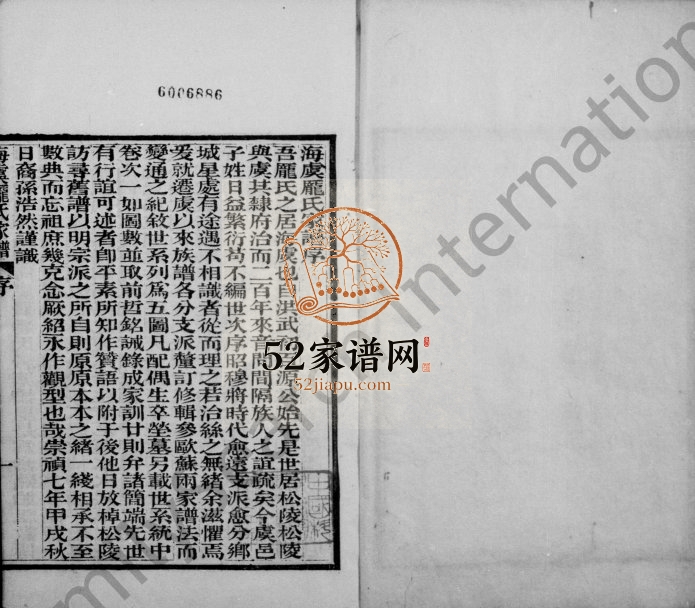 6006886
海虞龐氏家譜序
吾龐氏之居海虞也自洪武 源公始先是世居松陵松陵
與虞共隸府治而二百年來音問間隔族人之誼疏矣今虞邑
子姓日益繁衍曷不編世次序昭穆將時代愈遠支派愈分鄉
城星處有途遇不相識者從而理之若治絲之無緒余滋懼焉
爰就遷虞以來族譜各分支派釐訂修輯參歐蘇兩家譜法而
變通之紀敘世系列為五圖凡配偶生卒塋墓另載世系統中
卷次一如圖數並取前哲銘誡錄成家訓廿則弁諸簡端先世
有行誼可述者卽平素所知作贊語以附于後他日放棹松陵
訪尋舊譜以明宗派之所自則原原本本之緒一綫相承不至
數典而忘祖庶幾克念厥紹永作觀型也哉崇禎七年甲戌秋
日裔孫浩然謹識
海虞龐氏家譜 序 一
52家谱网
52jiapu.com
International